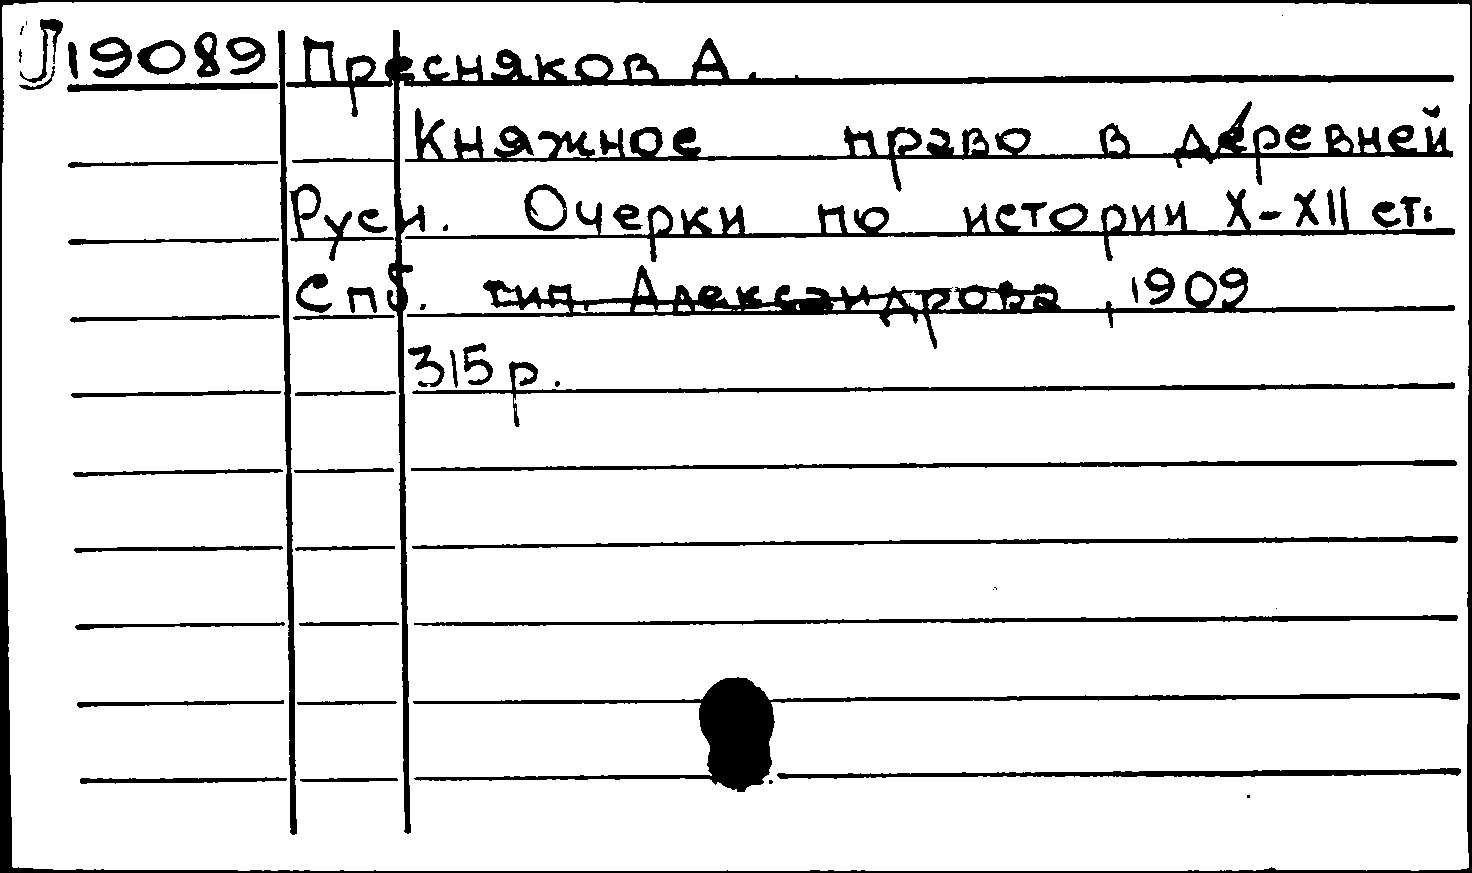 J19089 Пресняков А.
Княжное право в деревней
Руси. Очерки по истории X-XII ст.
Спб. тип. Александрова, 1909
315 р.